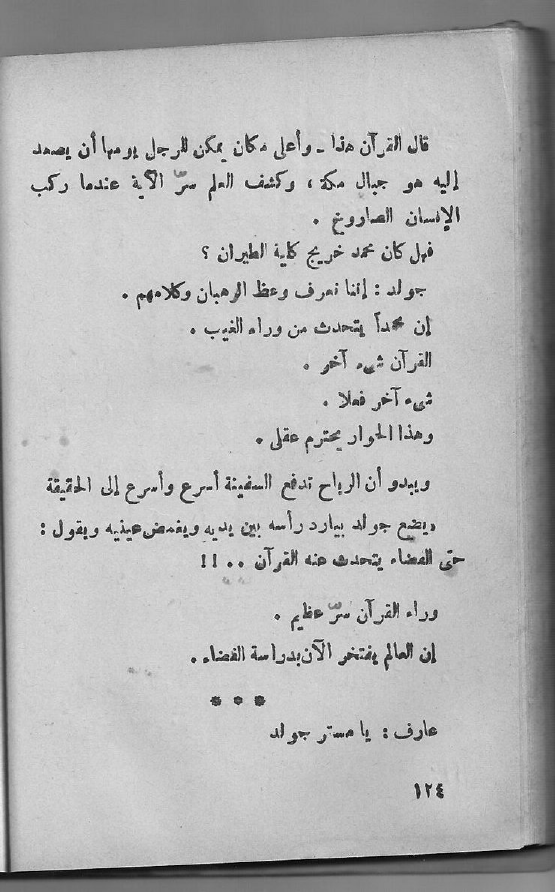 قال القرآن هذا - وأعلى مكان يمكن للرجل يومها أن يصعد
إليه هو جبال مكة ، وكشف العلم سرّ الآية عندما ركب
الإنسان الصاروخ .
فهل كان محمد خريج كلية الطيران ؟
جولد : إننا نعرف وعظ الرهبان وكلامهم .
إن محمداً يتحدث من وراء الغيب .
القرآن شيء آخر .
شيء آخر فعلا .
وهذا الحوار يحترم عقلى .
ويبدو أن الرياح تدفع السفينة أسرع وأسرع إلى الحقيقة
ويضع جولد بيارد رأسه بين يديه ويغمض عينيه ويقول :
حتى الفضاء يتحدث عنه القرآن . . !!
وراء القرآن سرّ عظيم .
إن العالم يفتخر الآن بدراسة الفضاء .
* * *
عارف : يا مستر جولد
١٢٤